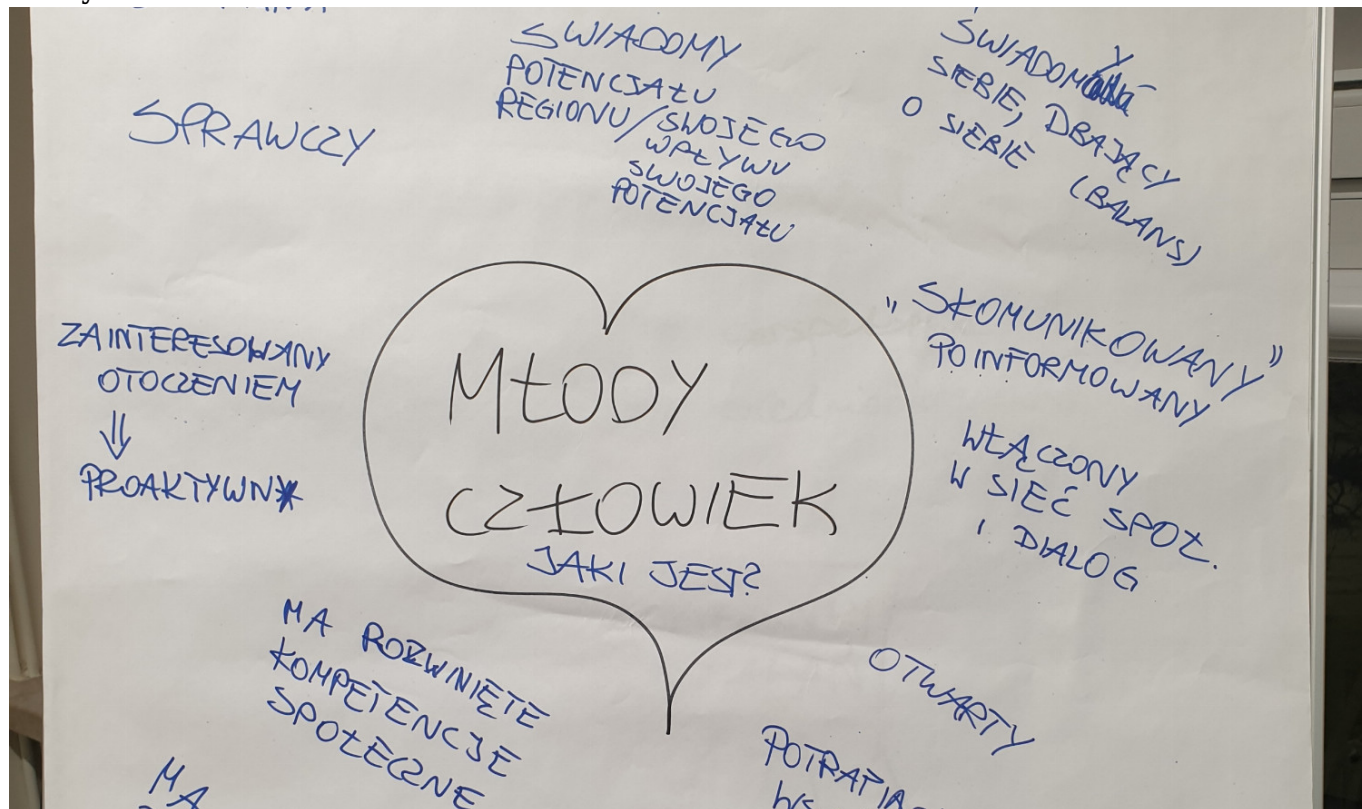 SPRAWCZY
ŚWIADOMY
POTENCJAŁU
REGIONU/SWOJEGO
WPŁYWU
SWOJEGO
POTENCJAŁU
ŚWIADOMY
SIEBIE, DBAJĄCY
O SIEBIE (BALANS)
ZAINTERESOWANY
OTOCZENIEM
⇓
PROAKTYWNY
MŁODY
CZŁOWIEK
JAKI JEST?
„SKOMUNIKOWANY”
POINFORMOWANY
WŁĄCZONY
W SIEĆ SPOŁ.
I DIALOG
OTWARTY
MA ROZWNIĘTE
KOMPETENCJE
SPOŁECZNE
MA